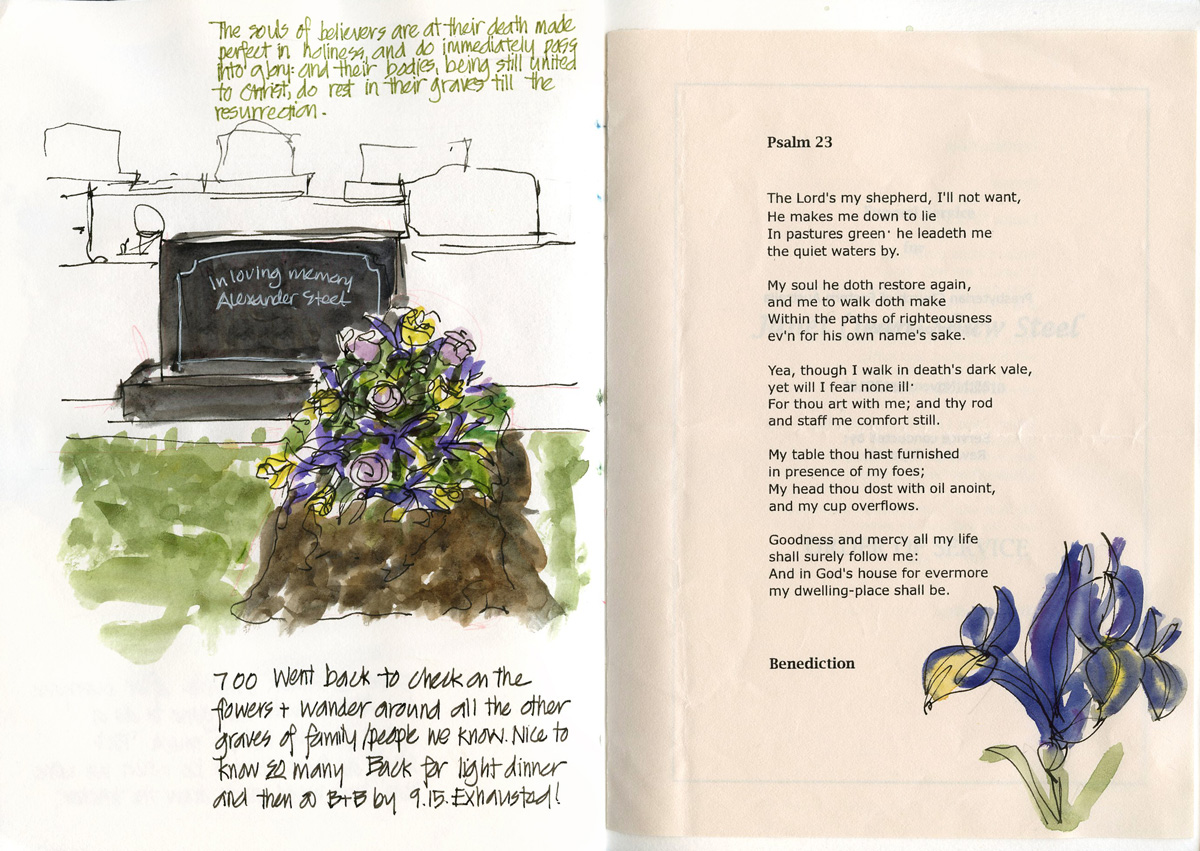 The souls of believers are at their death made
perfect in holiness, and do immediately pass
into glory: and their bodies, being still united
to Christ, do rest in their graves till the
resurrection.
In loving memory
Alexander Steel
700 Went back to check on the
flowers + wander around all the other
graves of family/people we know. Nice to
know so many Back for light dinner
and then to B+B by 9.15. Exhausted!
Psalm 23
The Lord's my shepherd, I'll not want,
He makes me down to lie
In pastures green· he leadeth me
the quiet waters by.
My soul he doth restore again,
and me to walk doth make
Within the paths of righteousness
ev'n for his own name's sake.
Yea, though I walk in death's dark vale,
yet will I fear none ill·
For thou art with me; and thy rod
and staff me comfort still.
My table thou hast furnished
in presence of my foes;
My head thou dost with oil anoint,
and my cup overflows.
Goodness and mercy all my life
shall surely follow me:
And in God's house for evermore
my dwelling-place shall be.
Benediction